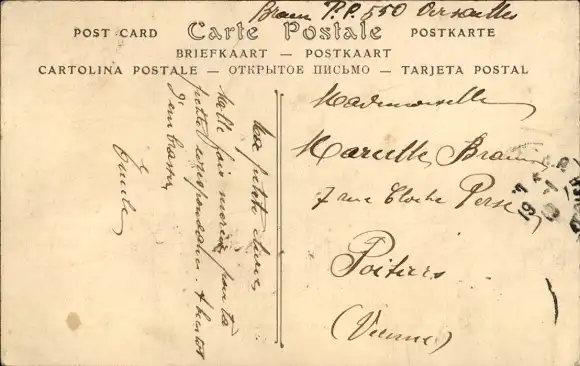 Braun P.P. 550 Versailles
POST CARD Carte Postale POSTKARTE
BRIEFKAART — POSTKAART
CARTOLINA POSTALE — ОТКРЫТОЕ ПИСЬМО — TARJETA POSTAL
Ma petite chérie,
Mille fois merci pour ta
petite correspondance. A bientôt
j'embrasse
Émile
Mademoiselle
Marcelle Braun
7 rue Cloche Perse
Poitiers
(Vienne)